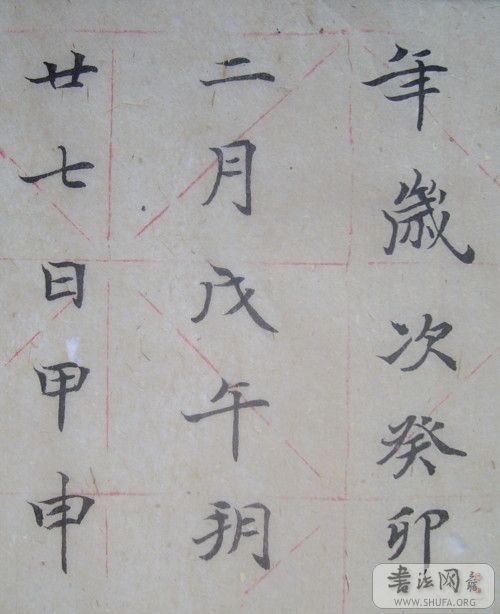 年歳次癸卯
二月戊午朔
廿七日甲申
書法网
WWW.SHUFA.ORG